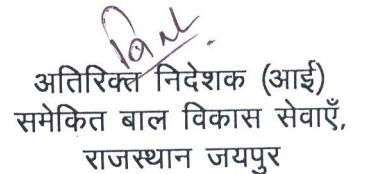 अतिरिक्त निदेशक (आई)
समेकित बाल विकास सेवाएँ,
राजस्थान जयपुर